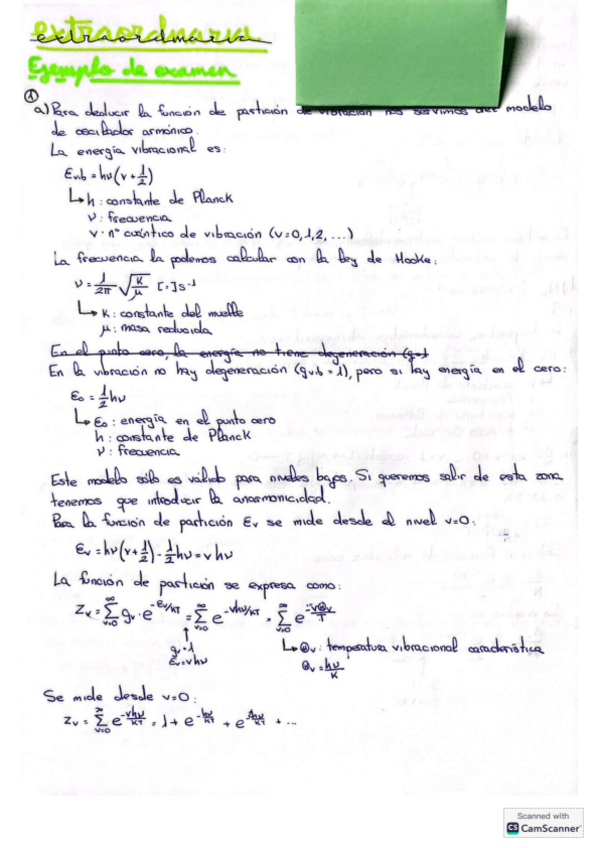 extraordinaria
Ejemplo de examen
①
a) Para deducir la función de partición de vibración nos servimos del modelo
de oscilador armónico.
La energía vibracional es:
Evib = hν(v+1/2)
↳ h: constante de Planck
ν: frecuencia
v: nº cuántico de vibración (v=0,1,2,...)
La frecuencia la podemos calcular con la ley de Hooke:
ν = 1/2π √(K/μ) [=] s⁻¹
↳ K: constante del muelle
μ: masa reducida
En el punto cero, la energía no tiene degeneración (g=1
En la vibración no hay degeneración (gvib = 1), pero si hay energía en el cero:
ε₀ = 1/2 hν
↳ ε₀: energía en el punto cero
h: constante de Planck
ν: frecuencia
Este modelo sólo es válido para niveles bajos. Si queremos salir de esta zona
tenemos que introducir la anarmonicidad.
Para la función de partición Ev se mide desde el nivel v=0:
εv = hν(v+1/2) - 1/2 hν = v hν
La función de partición se expresa como:
Zv = Σ(v=0→∞) gv · e^(-εv/KT) = Σ(v=0→∞) e^(-vhν/KT) = Σ(v=0→∞) e^(-vΘv/T)
↑
gv=1
εv=vhν
↳ Θv: temperatura vibracional característica
Θv = hν/K
Se mide desde v=0:
Zv = Σ(v=0→∞) e^(-vhν/KT) = 1 + e^(-hν/KT) + e^(-2hν/KT) + ...
Scanned with
CS CamScanner